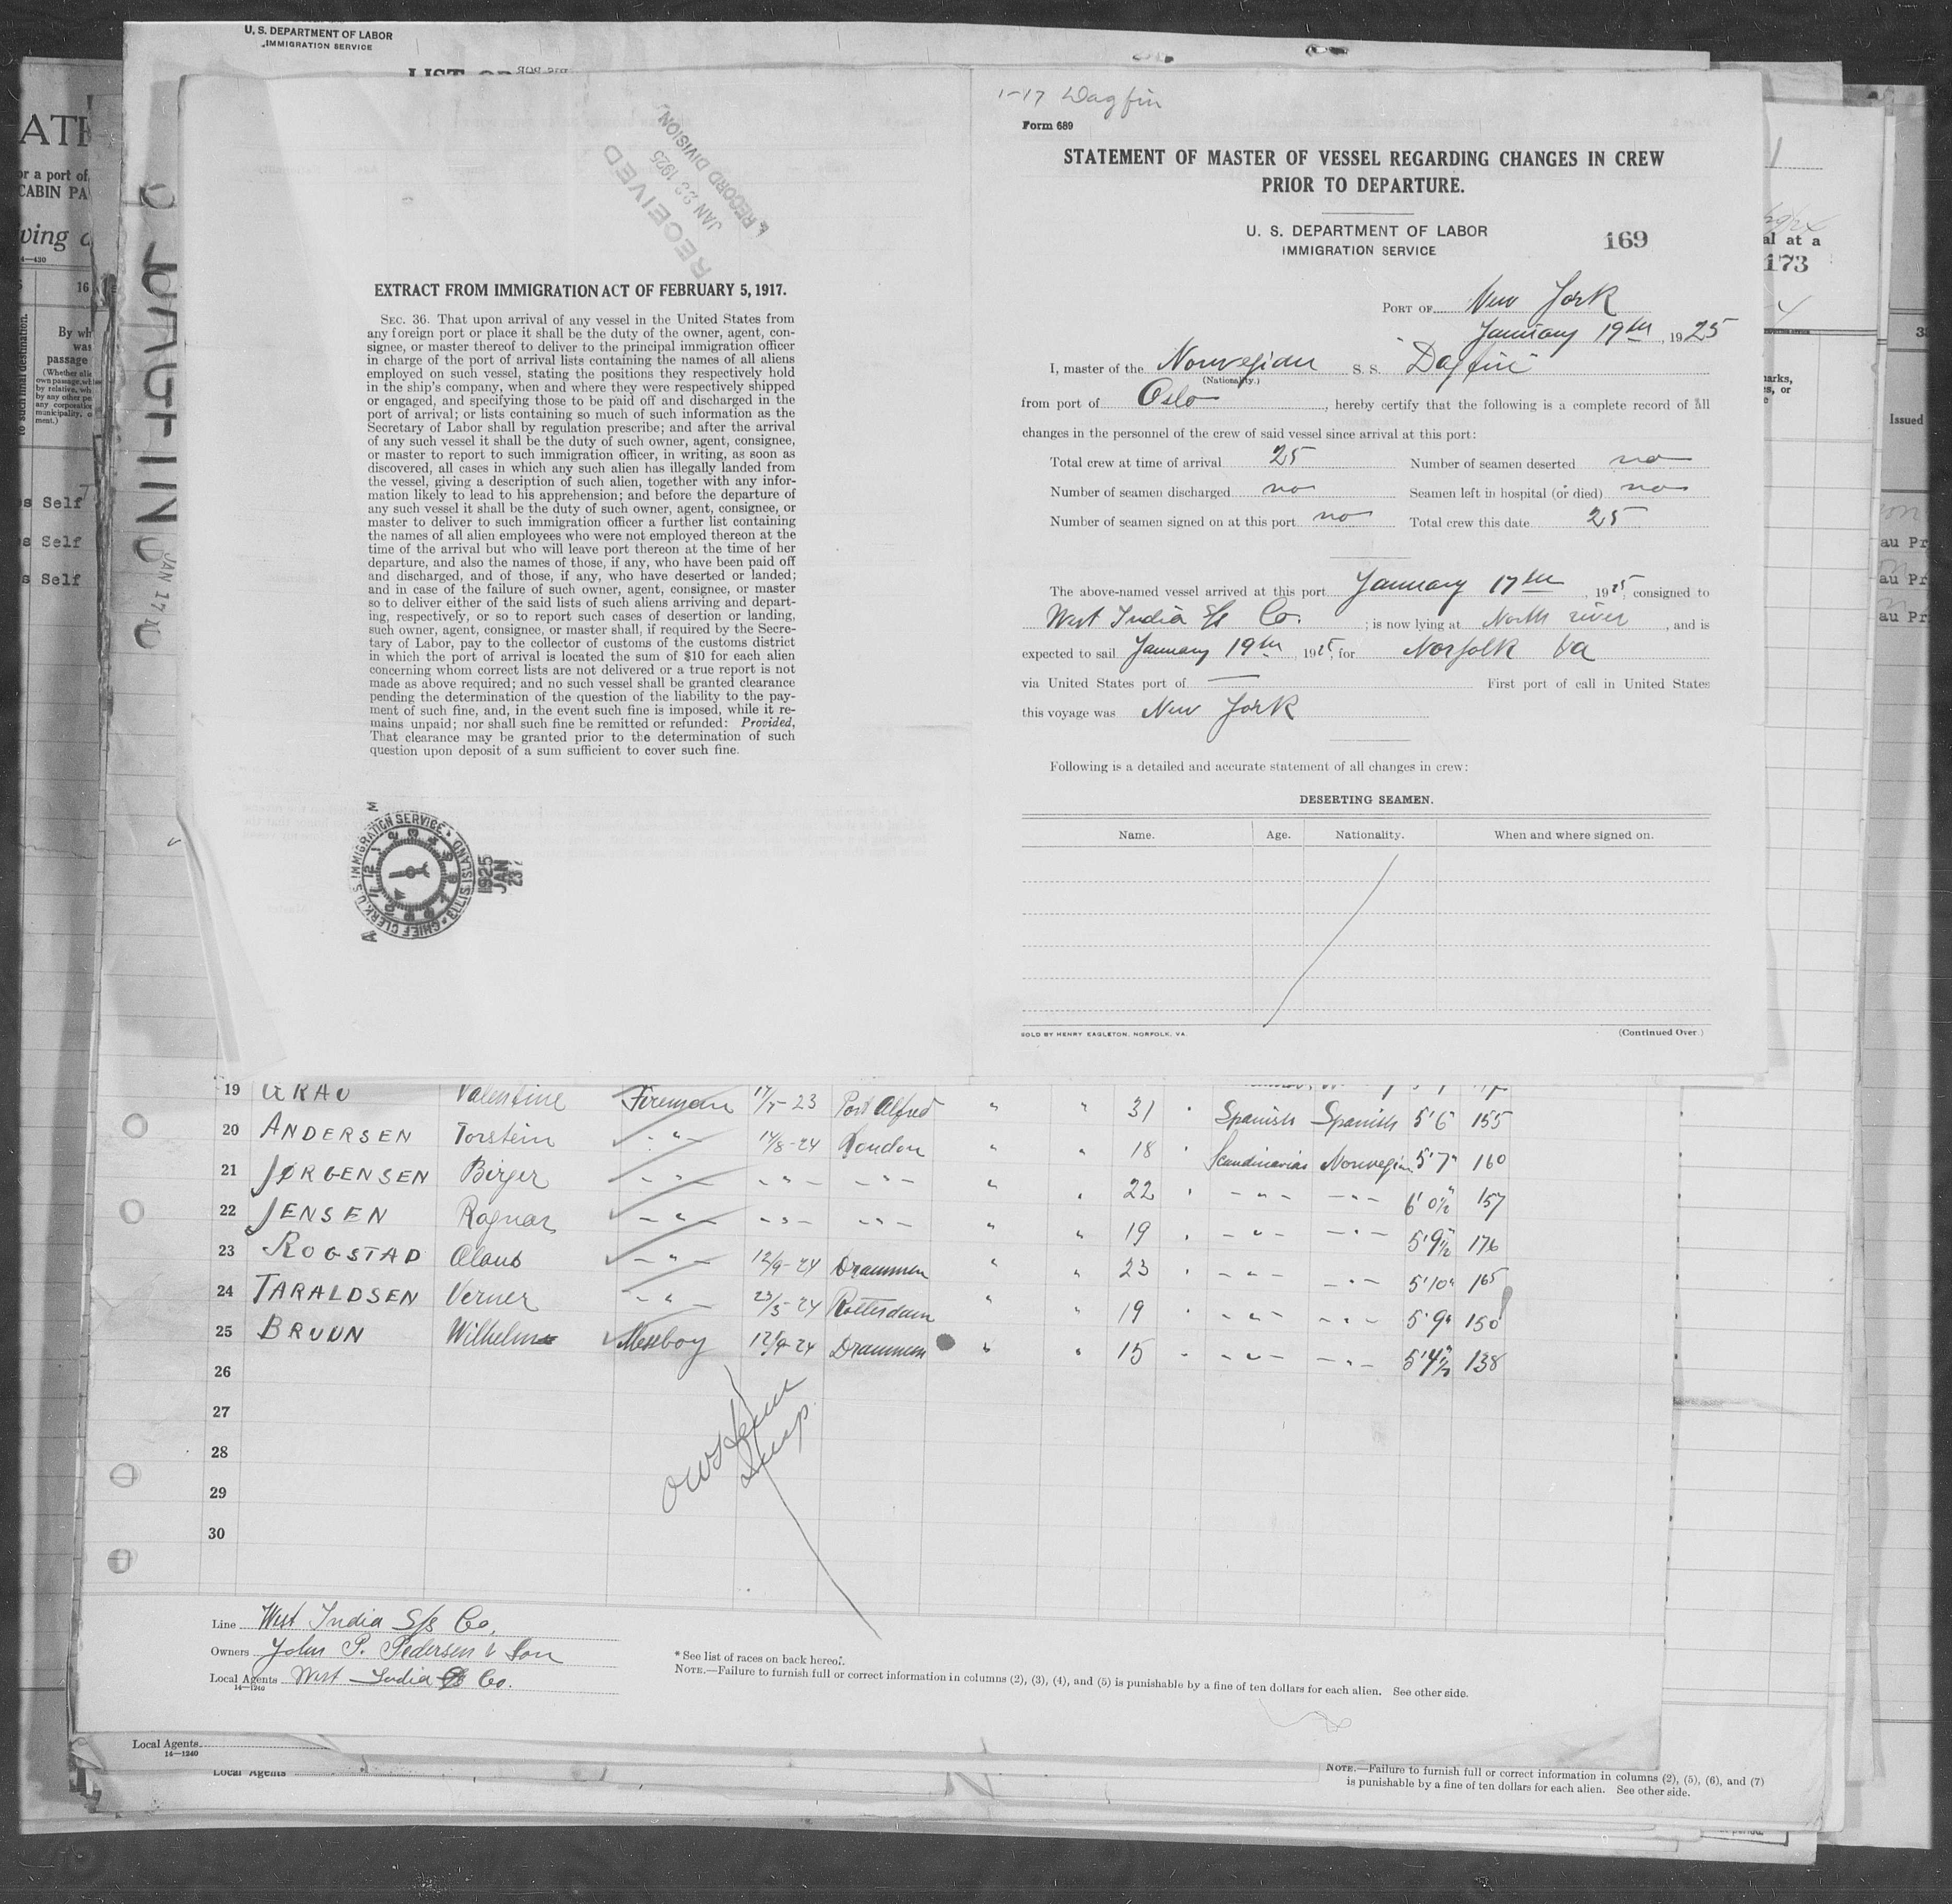 U. S. DEPARTMENT OF LABOR
IMMIGRATION SERVICE
RECEIVED
JAN 23 1925
RECORD DIVISION
DAGFIN
JAN 17
EXTRACT FROM IMMIGRATION ACT OF FEBRUARY 5, 1917.
SEC. 36. That upon arrival of any vessel in the United States from
any foreign port or place it shall be the duty of the owner, agent, con-
signee, or master thereof to deliver to the principal immigration officer
in charge of the port of arrival lists containing the names of all aliens
employed on such vessel, stating the positions they respectively hold
in the ship's company, when and where they were respectively shipped
or engaged, and specifying those to be paid off and discharged in the
port of arrival; or lists containing so much of such information as the
Secretary of Labor shall by regulation prescribe; and after the arrival
of any such vessel it shall be the duty of such owner, agent, consignee,
or master to report to such immigration officer, in writing, as soon as
discovered, all cases in which any such alien has illegally landed from
the vessel, giving a description of such alien, together with any infor-
mation likely to lead to his apprehension; and before the departure of
any such vessel it shall be the duty of such owner, agent, consignee, or
master to deliver to such immigration officer a further list containing
the names of all alien employees who were not employed thereon at the
time of the arrival but who will leave port thereon at the time of her
departure, and also the names of those, if any, who have been paid off
and discharged, and of those, if any, who have deserted or landed;
and in case of the failure of such owner, agent, consignee, or master
so to deliver either of the said lists of such aliens arriving and depart-
ing, respectively, or so to report such cases of desertion or landing,
such owner, agent, consignee, or master shall, if required by the Secre-
tary of Labor, pay to the collector of customs of the customs district
in which the port of arrival is located the sum of $10 for each alien
concerning whom correct lists are not delivered or a true report is not
made as above required; and no such vessel shall be granted clearance
pending the determination of the question of the liability to the pay-
ment of such fine, and, in the event such fine is imposed, while it re-
mains unpaid; nor shall such fine be remitted or refunded: Provided,
That clearance may be granted prior to the determination of such
question upon deposit of a sum sufficient to cover such fine.
CHIEF CLERK, U.S. IMMIGRATION SERVICE ELLIS ISLAND
1925 JAN 23
1-17 Dagfin
Form 689
STATEMENT OF MASTER OF VESSEL REGARDING CHANGES IN CREW
PRIOR TO DEPARTURE.
U. S. DEPARTMENT OF LABOR
IMMIGRATION SERVICE
169
PORT OF New York
January 19th, 1925
I, master of the Norwegian S. S. "Dagfin"
(Nationality.)
from port of Oslo, hereby certify that the following is a complete record of all
changes in the personnel of the crew of said vessel since arrival at this port:
Total crew at time of arrival 25 Number of seamen deserted no
Number of seamen discharged no Seamen left in hospital (or died) no
Number of seamen signed on at this port no Total crew this date 25
The above-named vessel arrived at this port January 17th, 1925, consigned to
West India S/S Co.; is now lying at North river, and is
expected to sail January 19th, 1925, for Norfolk Va
via United States port of — First port of call in United States
this voyage was New York
Following is a detailed and accurate statement of all changes in crew:
DESERTING SEAMEN.
Name. Age. Nationality. When and where signed on.
SOLD BY HENRY EAGLETON, NORFOLK, VA.
(Continued Over.)
19 GRAU Valentine Fireman 17/5-23 Port Alfred " " 31 " Spanish Spanish 5'6" 155
20 ANDERSEN Torstein -"- 14/8-24 London " " 18 " Scandinavian Norwegian 5'7" 160
21 JØRGENSEN Birger -"- -"- -"- " " 22 " -"- -"- 6'0½" 157
22 JENSEN Ragnar -"- -"- -"- " " 19 " -"- -"- 5'9½" 176
23 ROGSTAD Olaus -"- 12/9-24 Drammen " " 23 " -"- -"- 5'10" 165
24 TARALDSEN Verner -"- 23/5-24 Rotterdam " " 19 " -"- -"- 5'9" 150
25 BRUUN Wilhelm Messboy 12/9-24 Drammen " " 15 " -"- -"- 5'4½" 138
26
27
28
29
30
Line West India S/S Co.
Owners John P. Pedersen & Son
Local Agents West India Co.
14—1240
* See list of races on back hereof.
NOTE.—Failure to furnish full or correct information in columns (2), (3), (4), and (5) is punishable by a fine of ten dollars for each alien. See other side.
Local Agents
14—1240
Local Agents
NOTE.—Failure to furnish full or correct information in columns (2), (5), (6), and (7)
is punishable by a fine of ten dollars for each alien. See other side.
or a port of
CABIN PA
16
By wh
was
passage
s Self
s Self
s Self
al at a
173
Issued
au Pr
au Pr
au Pr